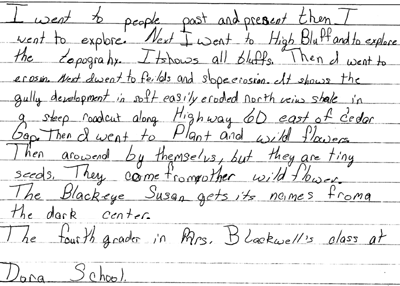 I went to people past and present then I
went to explore. Next I went to High Bluff and to explore
the topograhy. It shows all bluffs. Then I went to
erosin. Next I went to feilds and slope erosion. It shows the
gully development in soft easily eroded north veiw shale in
a steep roadcut along Highway 60 east of Cedar
Gap. Then I went to Plant and wild flowers.
Then arowend by themselvs, but they are tiny
seeds. They come from other wild flower.
The Blackeye Susan gets its names from a
the dark center.
The fourth grader in Mrs. Blackwell's class at
Dora School.